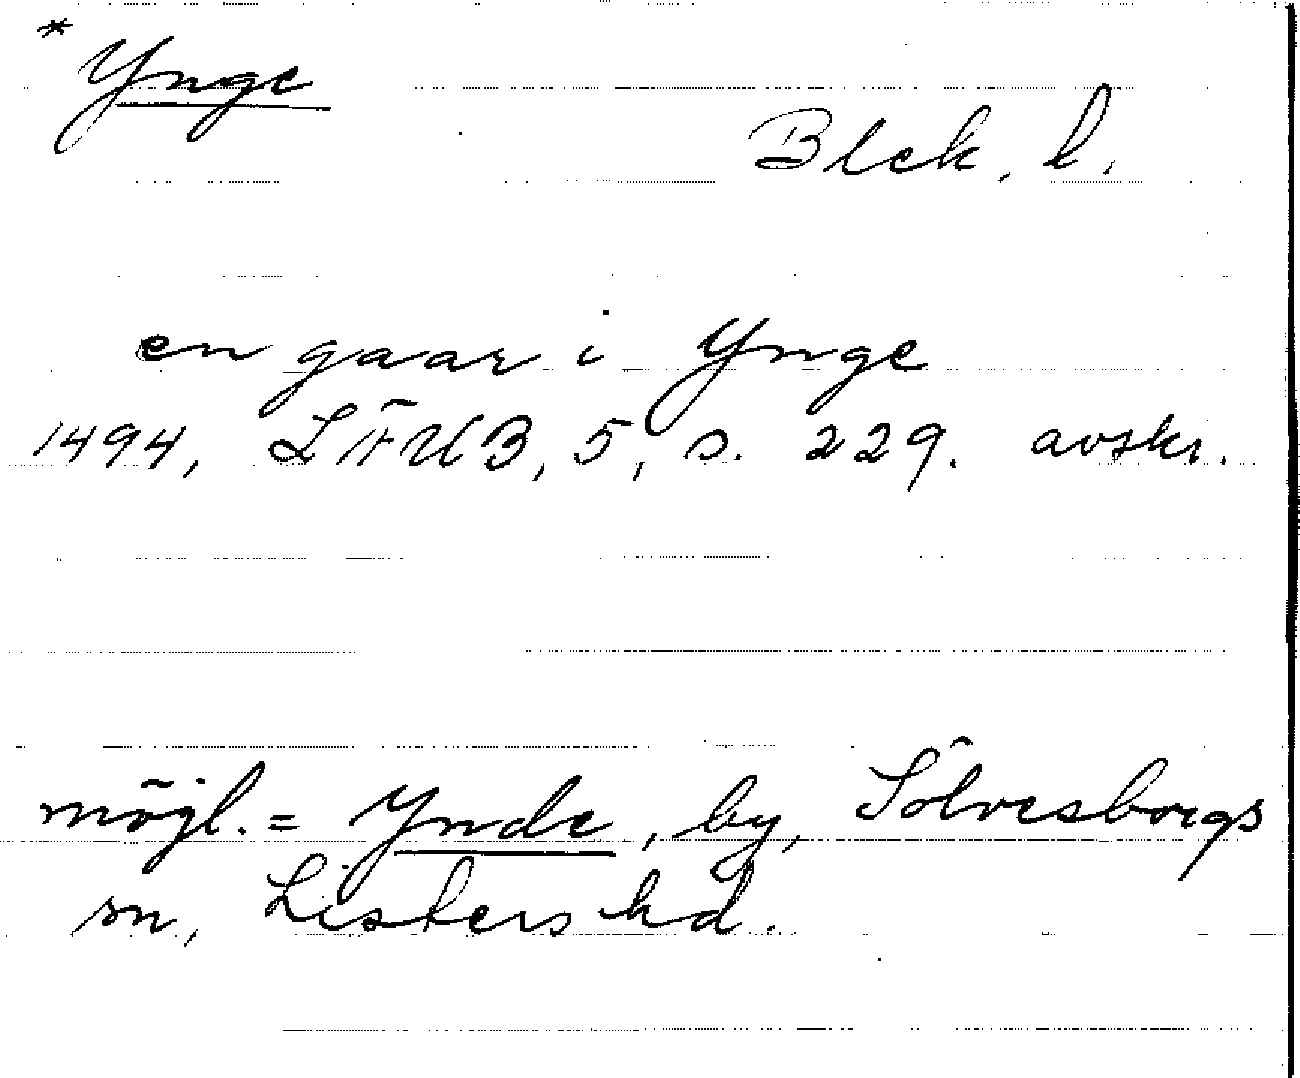 * Ynge
Blek. l.
en gaar i Ynge
1494, LÄUB, 5, s. 229. avskr.
mögl. = Ynde, by, Sölvesborgs
sn, Listers hd.